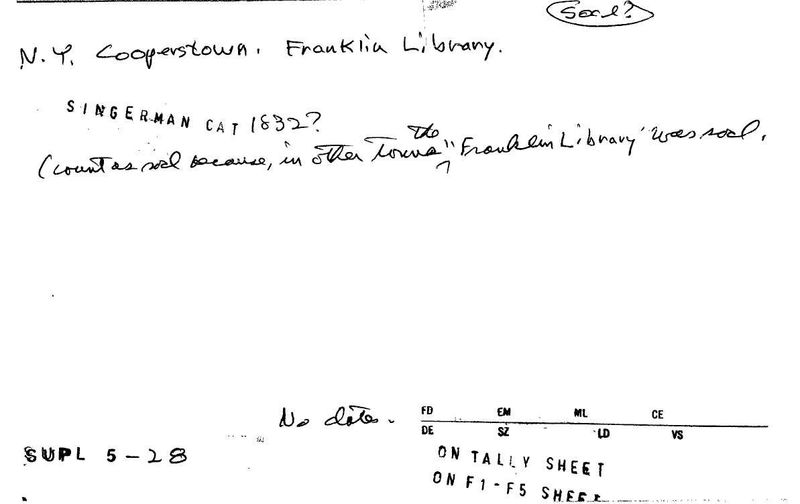 Socl?
N.Y. Cooperstown. Franklin Library.
SINGERMAN CAT 1832?
the
(count as socl because, in other towns "Franklin Library" was socl.
No dates.
FD EM ML CE
DE SZ LD VS
SUPL 5-28
ON TALLY SHEET
ON F1-F5 SHEET